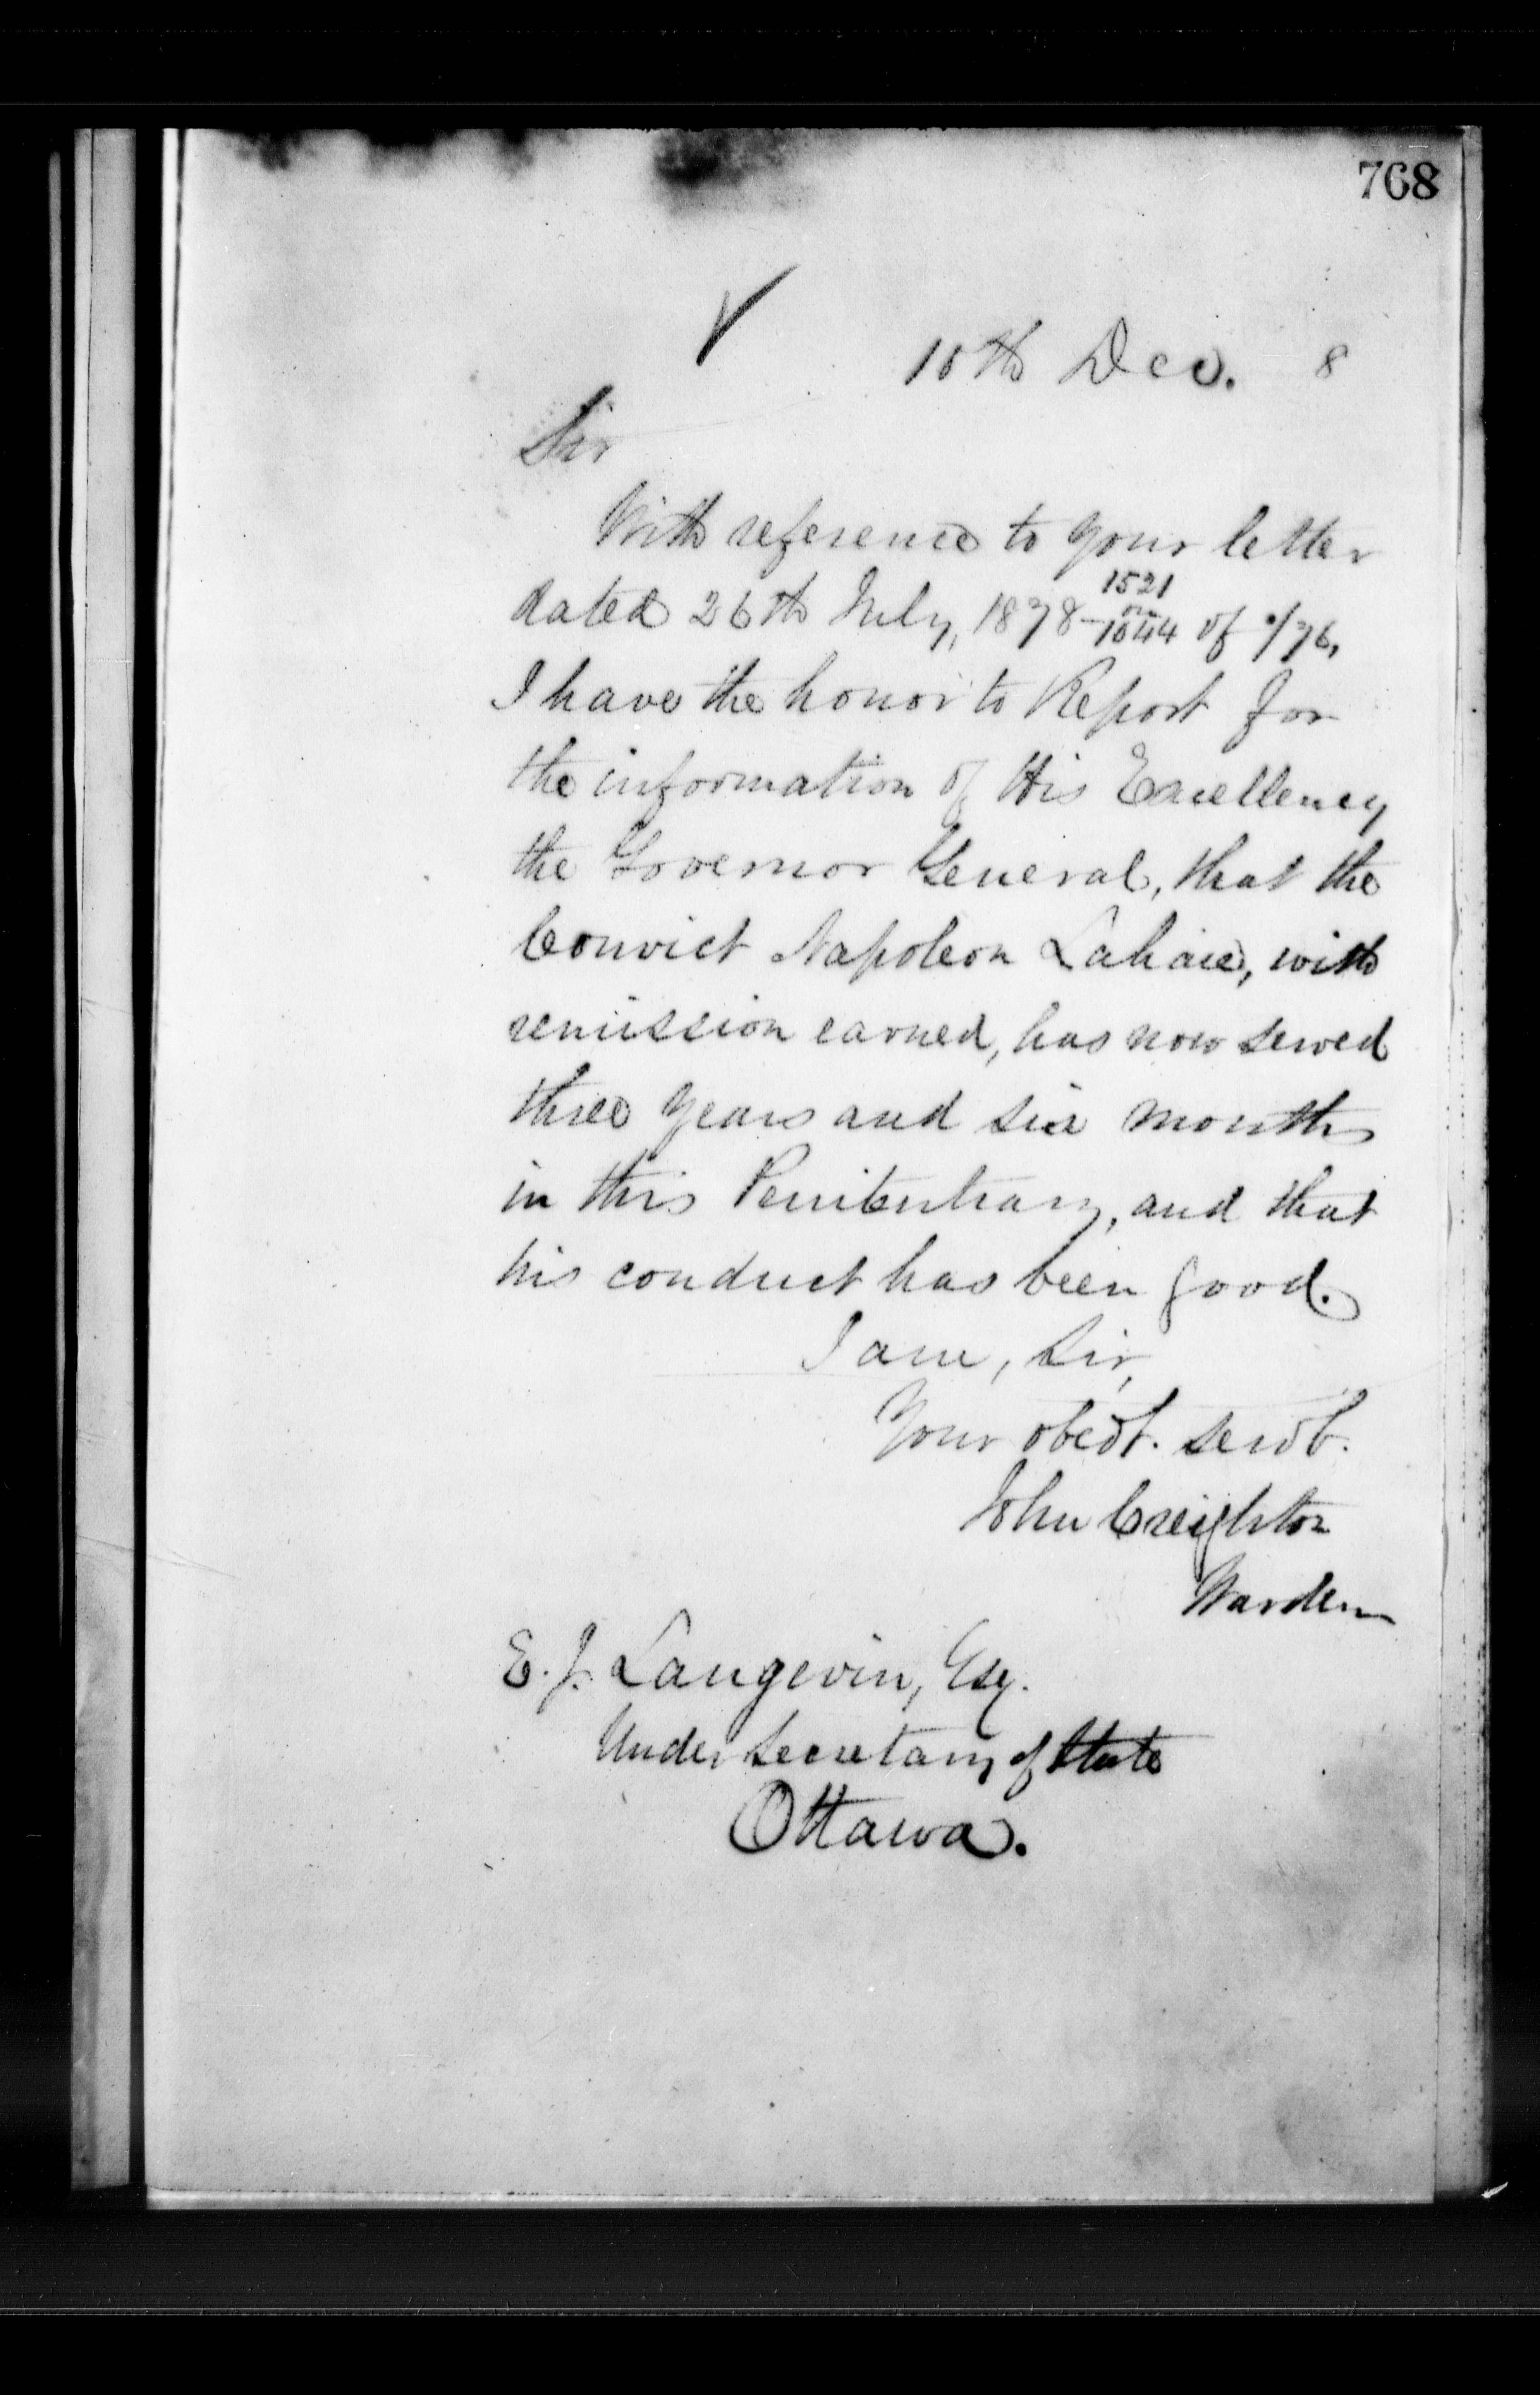 768
10th Dec. 8
Sir
With reference to your letter
dated 26th July, 1878 – 1521
on
1044 of /76,
I have the honor to Report for
the information of His Excellency
the Governor General, that the
Convict Napoleon Lahaie, with
remission earned, has now served
three years and six months
in this Penitentiary, and that
his conduct has been good.
I am, Sir,
Your obedt. servt.
John Creighton
Warden
E. J. Langevin, Esq.
Under Secretary of State
Ottawa.